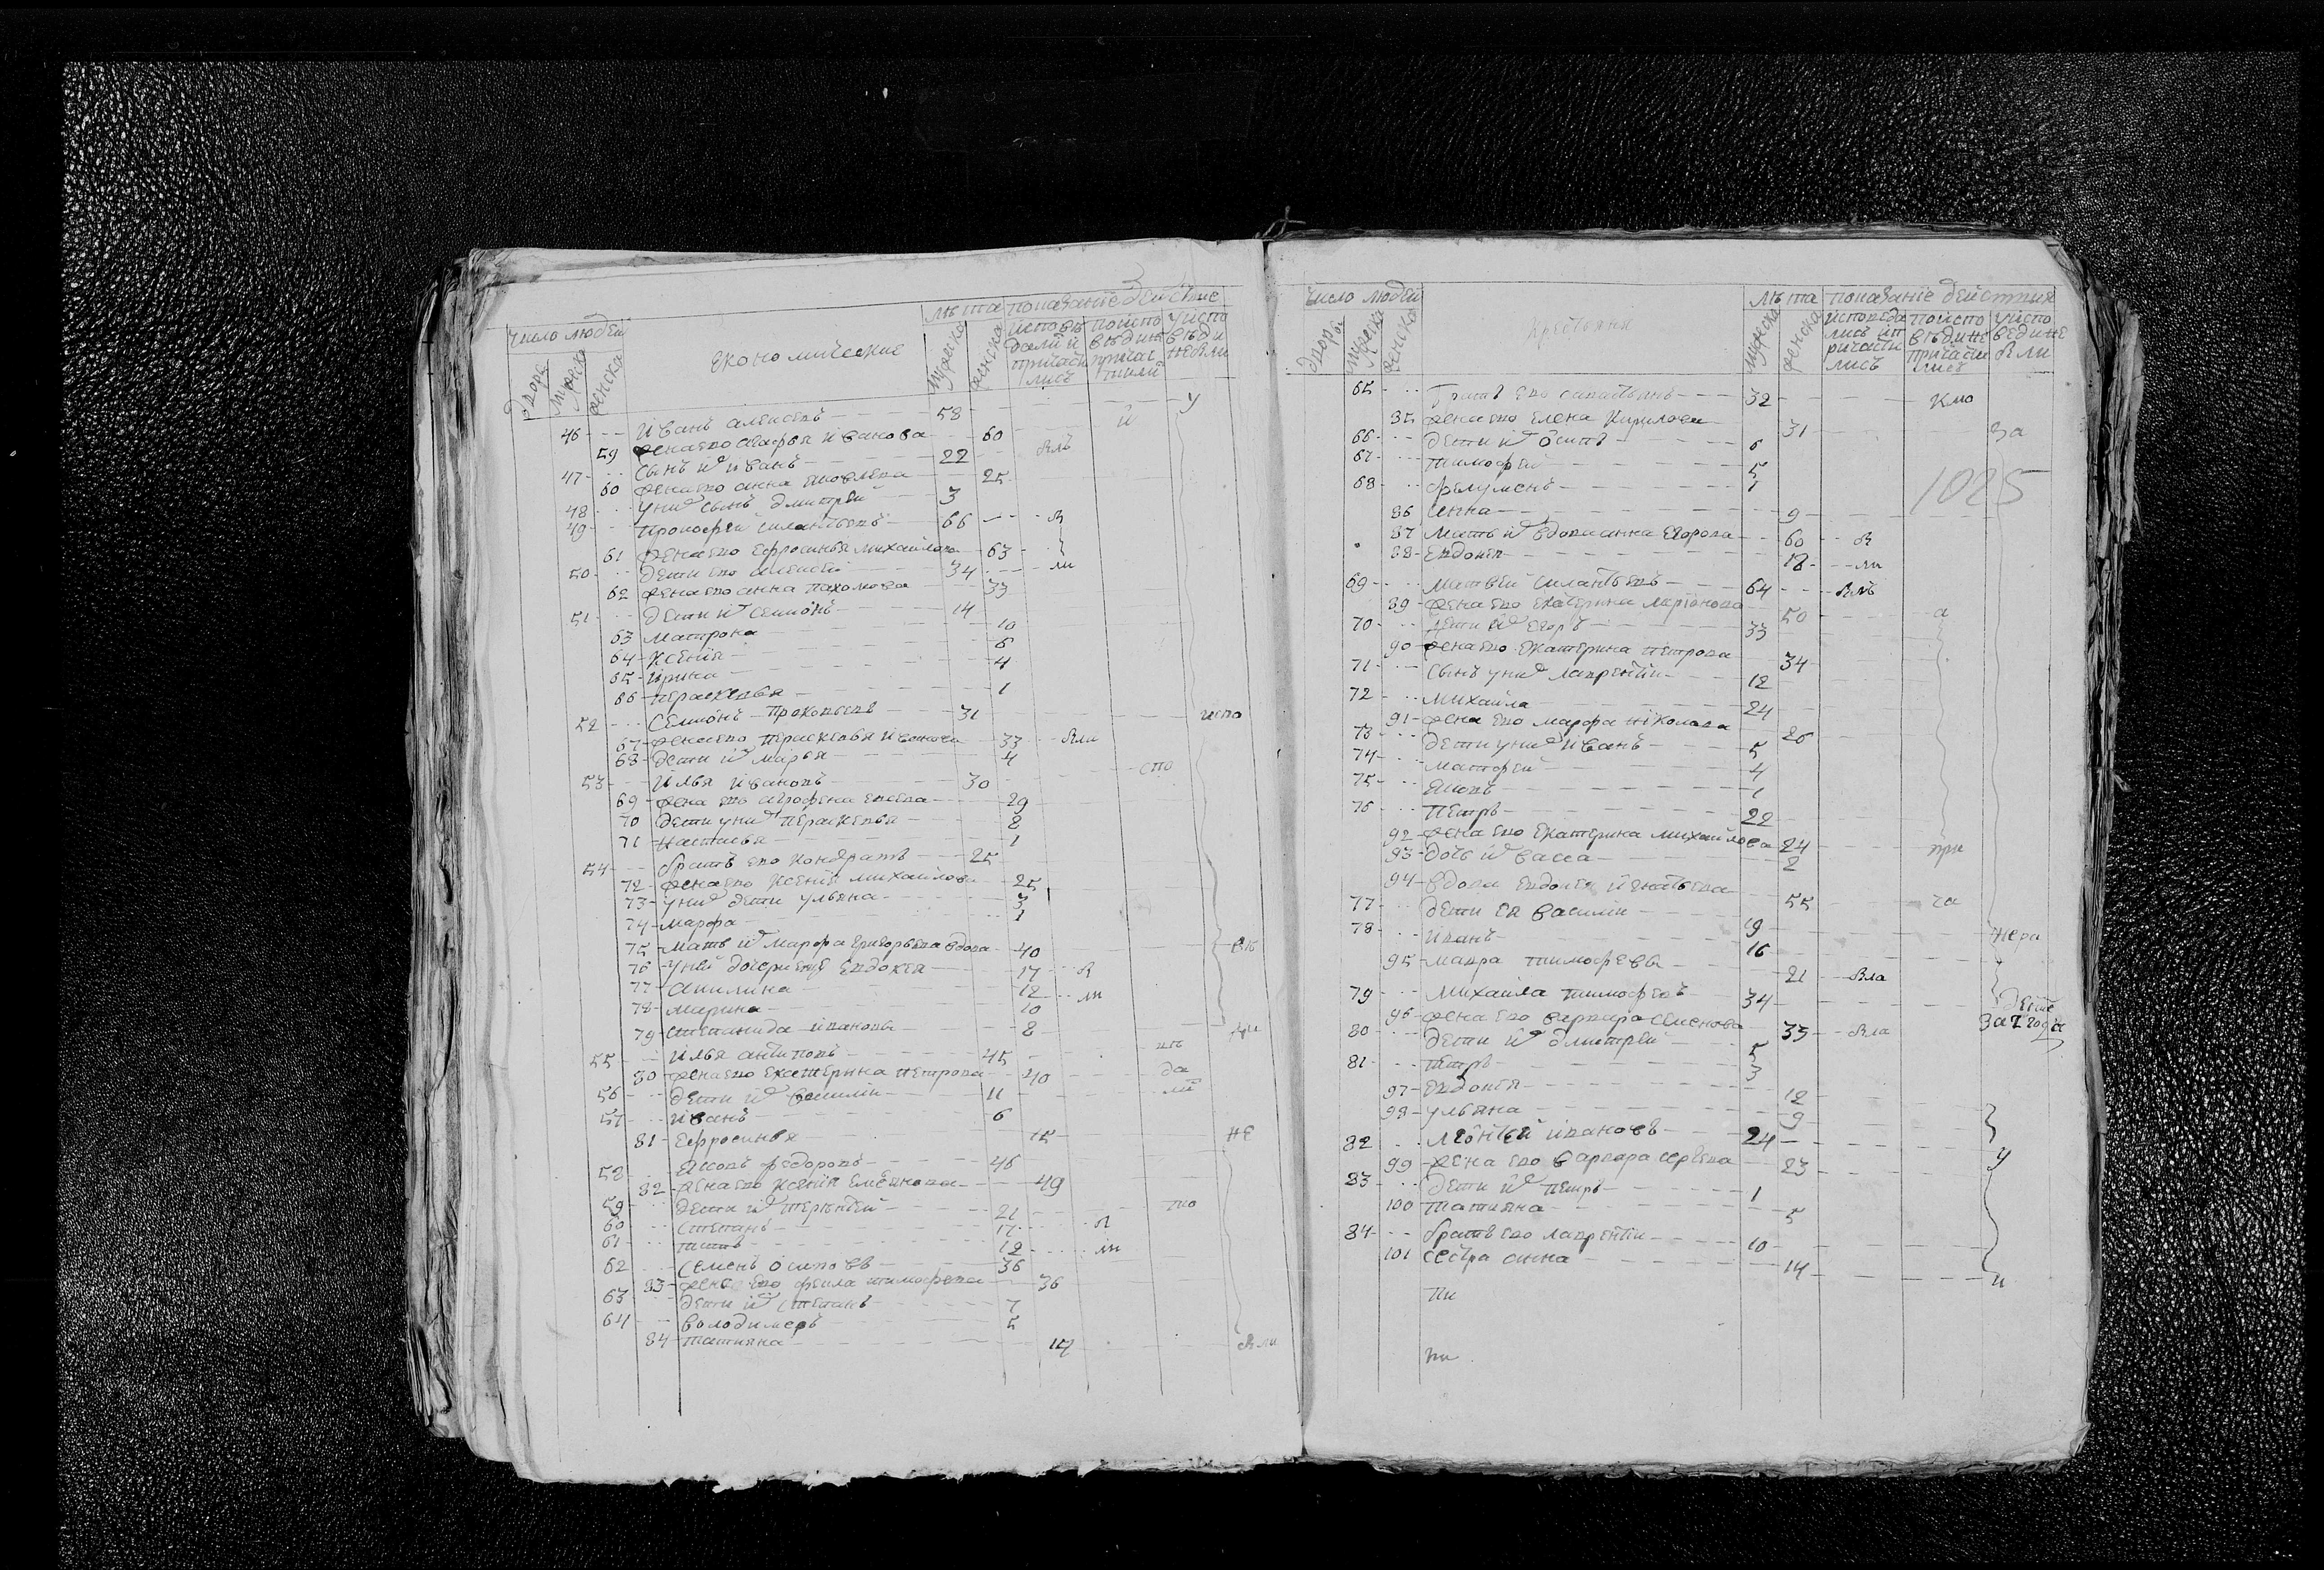 число людей
лѣта показанїе действие
двор мужеска женска
економические
мужеска женска
исповѣдали и причастилис
поиспо
вѣдине
у
46 Иванъ алексеевъ 58 й
59 жена ево агафья иванова 60 Ялъ
47 сынъ ихъ иванъ 22
60 жена ево анна яковлева 25
48 у них сынъ дмитрей 3
49 Прокофей силантьевъ 66 я
61 жена ево ефросинья михайлова 63
50 дети ево алексей 34 ли
62 жена ево анна пахомова 33
51 дети их семионъ 14
63 матрона 10
64 ксения 6
65 ирина 4
66 параскевья 1
52 семионъ прокопьевъ 31 испо
67 жена ево параскевья иванова 33 Яли
68 дети их марья 4
53 илья ивановъ 30 спо
69 жена ево агрофена 29
70 дети у них пераскевья 8
71 настасья 1
54 братъ ево кондратъ 25
72 жена ево ксения михайлова 25
73 у них дети ульяна 3
74 марфа 1
75 мать их марфа григорьева вдова 40 вѣ
76 у ней дочери евдокея 17 я
77 акилина 12 ли
78 марина 10
79 степанида иванова 8 ди
55 илья антиповъ 45
80 жена ево екатерина петрова 40 да
56 дети их василии 11 ли
57 иванъ 6
81 ефросинья 15 не
58 яковъ федоровъ 46
82 жена ево ксения 49
59 дети их терентей 21 то
60 степанъ 17 я
61 титъ 12 ли
62 семенъ осиповъ 36
83 жена ево фекла тимофеева 36
63 дети их степанъ 7
64 володимеръ 5
84 татияна 14 Яли
число людей
лѣта показанїе действия
двора мужеска женска
крестьяня
мужеска женска
исповеда
лись ип
ричасти
лись
поиспо
вѣдине
причасти
лись
уиспо
ведине
были
65 братъ ево 32 кто
85 жена ево елена кирилова 31 за
66 дети их осипъ 6
67 тимофей 5
68 1
1025
86 анна 9
87 мать их вдова анна егорова 60 я
88 евдокея 18 ли
69 матвей силантьевъ 64 Ялъ
89 жена ево екатерина 50 а
70 дети их егоръ 33
90 жена ево екатерина петрова 34
71 сынъ у них лаврентии 12
72 михаила 24
91 жена ево марфа николаева 26
73 дети у них иванъ 5
74 матфей 4
75 яковъ 1
76 петръ 22
92 жена ево екатерина михайлова 24 при
93 дочь их васса 2
94 вдова евдокея игнатьева 55 ча
77 дети ея василии 19
78 иванъ 16 нера
95 мавра тимофеева 21 Яла
79 михаила тимофеевъ 34
96 жена ево варвара семенова 33 Яла за 2 года
80 дети их дмитрей 5
81 петръ 3
97 евдокея 12
98 ульяна 9
82 леонтей ивановъ 24
99 жена ево варвара сергеева 23 у
83 дети их петръ 1
100 татияна 5
84 братъ ево лаврентии 10
101 сестра анна 14 и
пи
пи